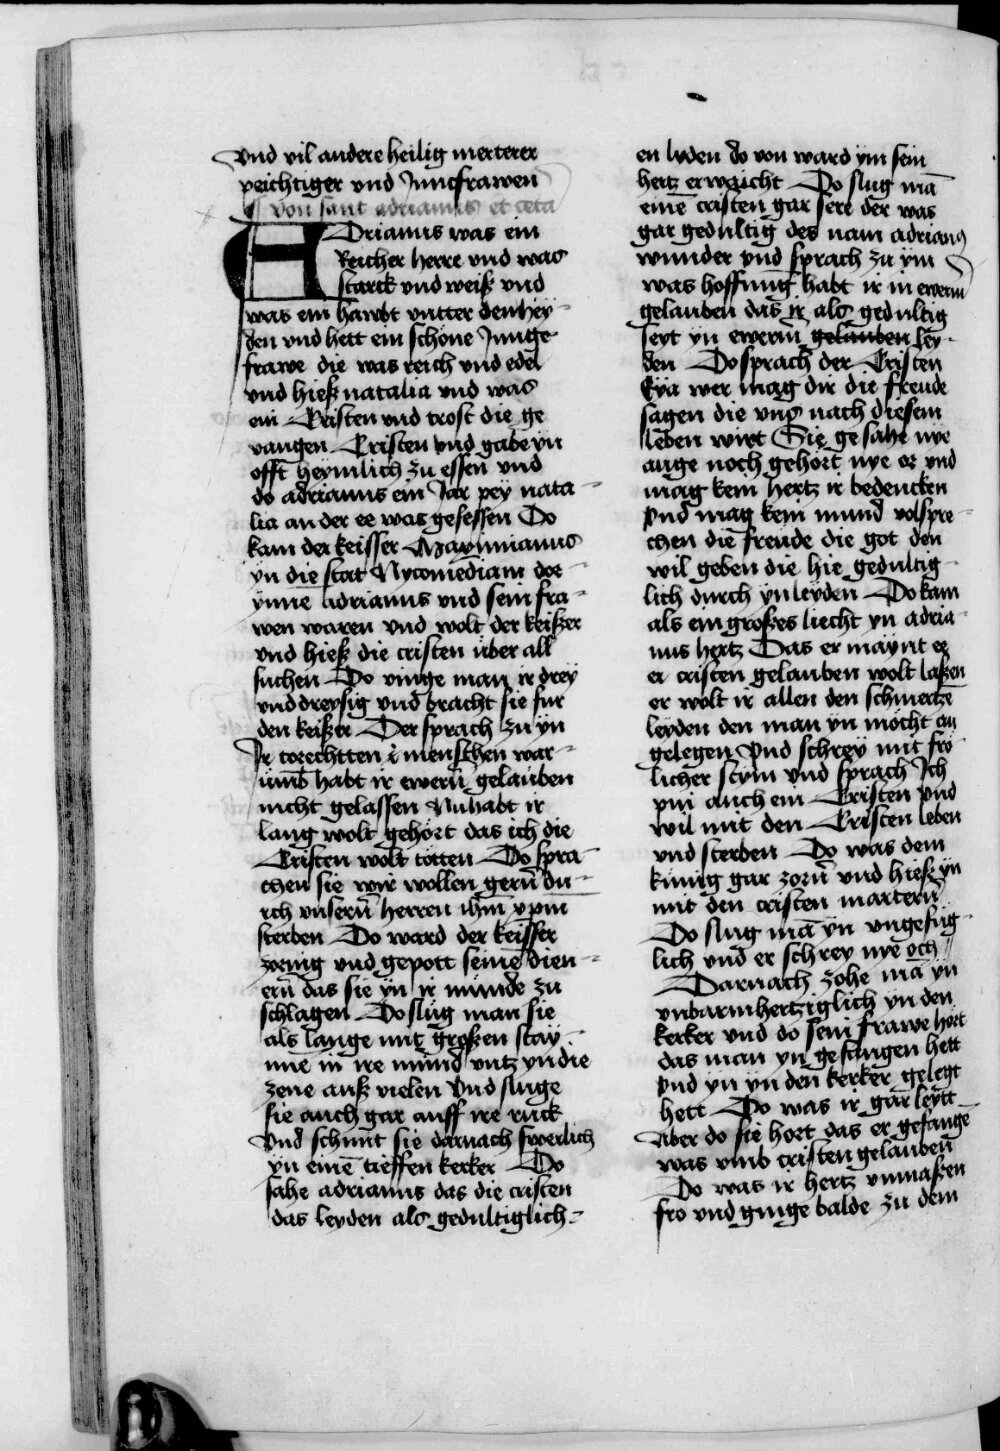 vnd vil andere heilig merterer
peichtiger vnd Junckfrawen
von sant adrianus et ceta
ADrianus was ein
Reicher herre vnd was
starck vnd weiß vnd
was ein hawbt vntter den hey-
den vnd hett ein schöne Junge-
frawe die was reich vnd edel
vnd hieß natalia vnd was
ein Cristen vnd trost die ge
vangen Cristen vnd gabe yn
offt heymlich zu essen vnd
do adrianus ein Jar pey nata-
lia an der ee was gesessen Do
kam der keisser Maximianus
yn die stat Nycomediam dor-
ynne adrianus vnd sein fra-
wen waren vnd wolt der keißer
vnd hieß die cristen über all
suchen Do vinge man ir drey
vnd dreysig vnd bracht sie fur
den keißer Der sprach zu yn
Ir torechtten menschen war-
umb habt ir ewern̄ gelauben
nicht gelassen Nu habt ir
lang wolt gehört das ich die
Cristen wolt tötten Do spra-
chen sie wir wollen gern̄ du-
rch vnsern̄ herren ihm̄ xpm̄
sterben Do ward der keisser
zornig vnd gepott seinē dien-
ern̄ das sie yn ir munde zu
schlagen Do slug man sie
als lange mit großen stay-
nne in ire mund vntz yn die
zene auß vielen Vnd sluge
sie auch gar auff ire ruck
Vnd schmit sie darnach swerlich
yn einē tieffen kerker Do
sahe adrianus das die cristen
das leyden als gedultiglich-
en lyden do von ward ym sein
hertz erwaicht Do slug mā
einē cristen gar sere der was
gar gedultig des nam adrianꝰ
wunder vnd sprach zu ym
was hoffnung habt ir in ewerm
gelauben das ir als gedultig
seyt yn ewerm gelauben ley-
den Do sprach der Cristen
Eya wer mag dir die freude
sagen die vns nach diesem
leben wirt Sie gesahe nye
auge noch gehört nye or vnd
mag kein hertz ir bedencken
Vnd mag kein mund volspre-
chen die freude die got den
wil geben die hie gedultig-
lich durch yn leyden Do kam
als ein großes liecht yn adria-
nus hertz Das er maynt ee
er cristen gelauben wolt laßen
er wolt ir allen den schmertzē
leyden den man yn möcht an
gelegen Vnd schrey mit frö-
licher stym vnd sprach Ich
pin auch ein Cristen vnd
wil mit den Cristen leben
vnd sterben Do was dem
künig gar zorn̄ vnd hieß yn
mit den cristen martern̄
Do slug mā yn vngefüg-
lich vnd er schrey nye och
Darnach zohe mā yn
vnbarmhertziglich yn den
kerker vnd do sein frawe hort
das man yn gefangen hett
Vnd yn yn den kerker gelegt
hett Do was ir gar leytt
Aber do sie hort das er gefangē
was vmb cristen gelauben
Do was ir hertz vnmaßen
fro vnd ginge balde zu dem